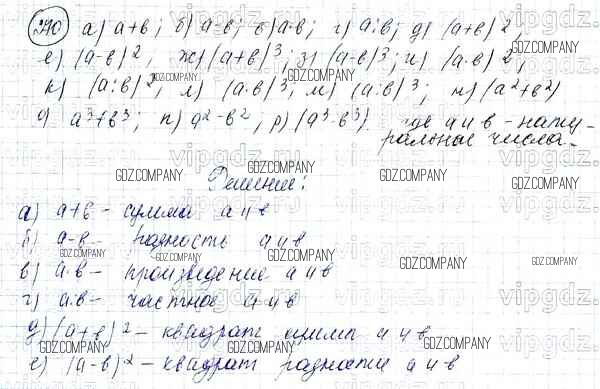 270 а) а+в; б) а-в; в) а·в; г) а:в; д) (а+в)2,
е) (а-в)2, ж) (а+в)3; з) (а-в)3; и) (а·в)2;
к) (а:в)2, л) (а·в)3; м) (а:в)3; н) (а2+в2)
о) а3+в3; п) а2-в2, р) (а3-в3) где а и в - нату-
ральные числа.
Решение:
а) а+в - сумма а и в
б) а-в - разность а и в
в) а·в - произведение а и в
г) а:в - частное а и в
д) (а+в)2 - квадрат сумм а и в
е) (а-в)2 - квадрат разности а и в